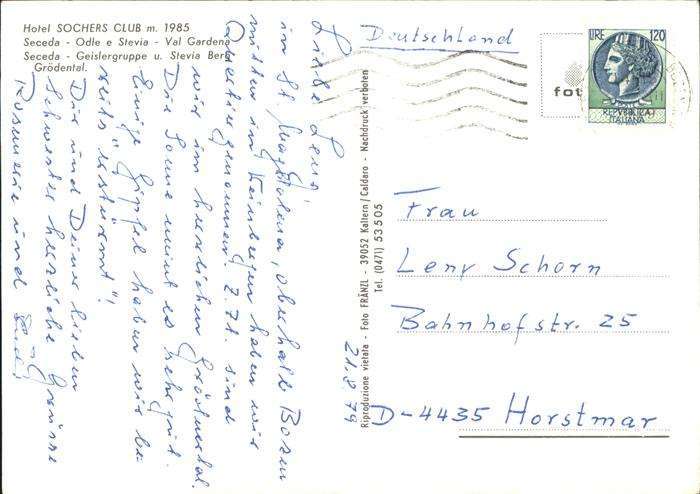 Hotel SOCHERS CLUB m. 1985
Seceda - Odle e Stevia - Val Gardena
Seceda - Geislergruppe u. Stevia Berg
Grödental.
Liebe Leni,
in St. Magdalena, oberhalb Bozen
mitten in Weinbergen haben wir
Quartier genommen. Z.Zt. sind
wir im herrlichen Grödnertal.
Die Sonne meint es sehr gut.
Einige Gipfel haben wir be-
reits "erstürmt"!
Dir und Deiner lieben
Schwester herzliche Grüsse
Rosmarie und
Riproduzione vietata - Foto FRÄNZL - 39052 Kaltern/Caldaro - Nachdruck verboten
Tel. (0471) 53505
21.8.79
Deutschland
fot
LIRE 120
REPVBBLICA
ITALIANA
Frau
Leny Schorn
Bahnhofstr. 25
D-4435 Horstmar